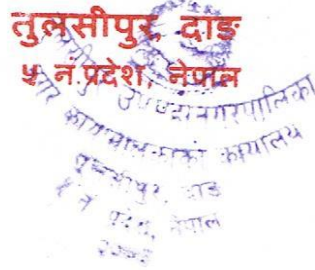 तुलसीपुर, दाङ
५ नं.प्रदेश, नेपाल
तुलसीपुर उपमहानगरपालिका
नगर कार्यपालिकाको कार्यालय
तुलसीपुर, दाङ
५ नं प्रदेश, नेपाल
२०७३